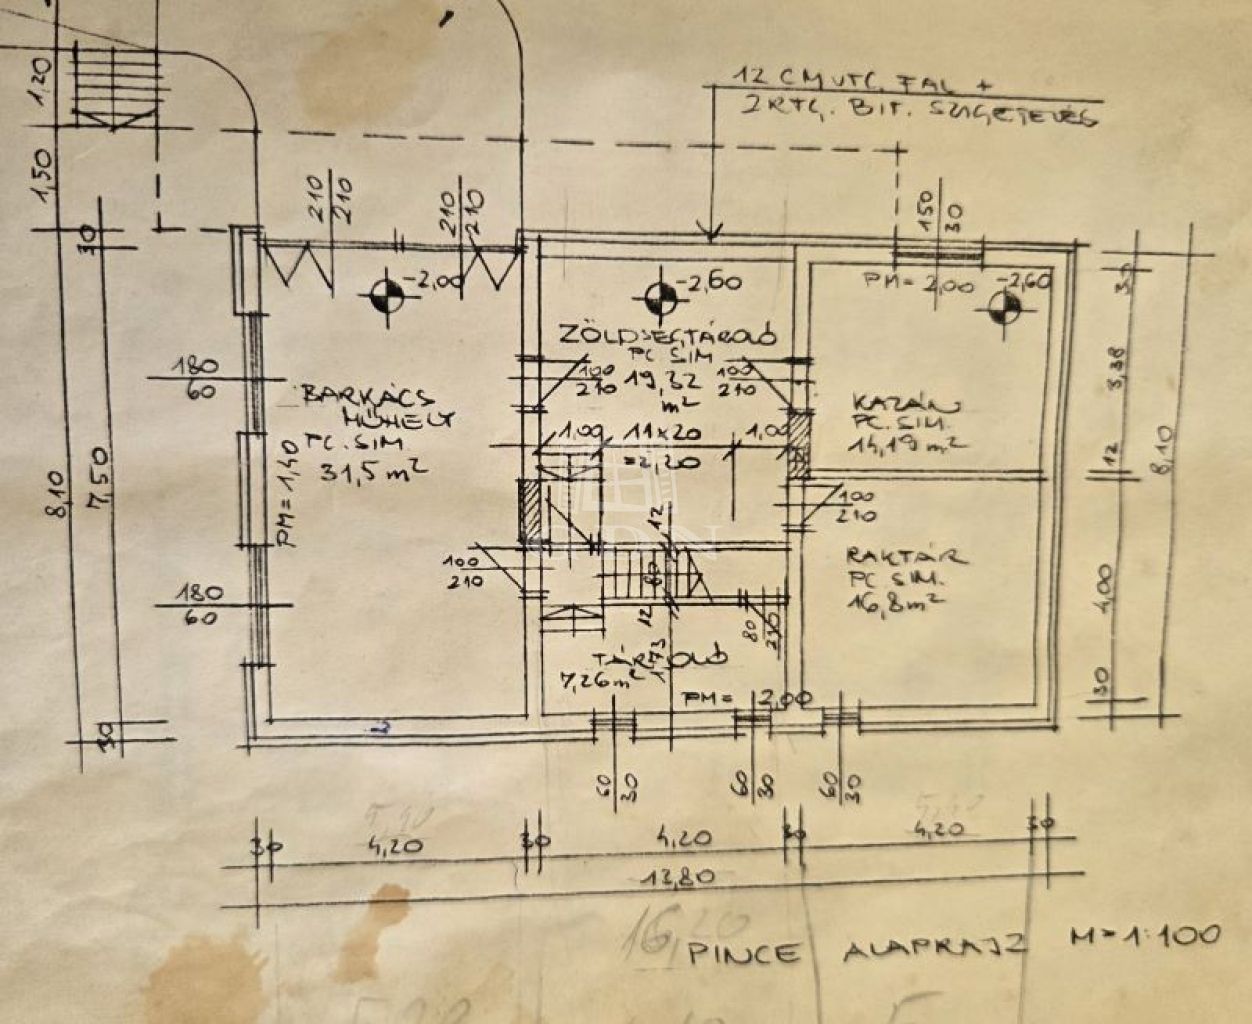 12 CM VTG. FAL +
2 RTG. BIT. SZIGETELÉS
1,20
1,50
30
210
210
210
210
150
30
-2,00
-2,60
PM = 2,00
-2,60
30
ZÖLDSÉGTÁROLÓ
PC SIM
19,32
m²
100
210
100
210
180
60
BARKÁCS
MŰHELY
PC. SIM
31,5 m²
PM = 1,40
KAZÁN
PC. SIM.
14,19 m²
3,38
12
8,10
8,10
7,50
1,00
11x20
=2,20
1,00
12
100
210
100
210
80
12
RAKTÁR
PC SIM.
16,8 m²
4,00
180
60
80
210
1,73
TÁROLÓ
7,26 m²
PM = 2,00
30
30
60
30
60
30
60
30
30
4,20
30
4,20
30
4,20
30
13,80
16,20
PINCE ALAPRAJZ M=1:100